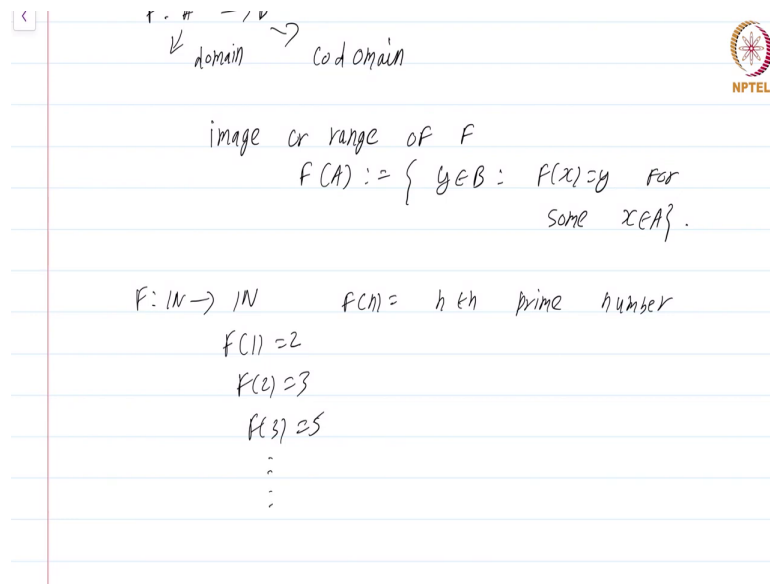 domain codomain
NPTEL
image or range of F
F(A) := { y∈B : F(x)=y for
some x∈A}.
F: ℕ → ℕ F(n) = nth prime number
F(1) = 2
F(2) = 3
F(3) = 5